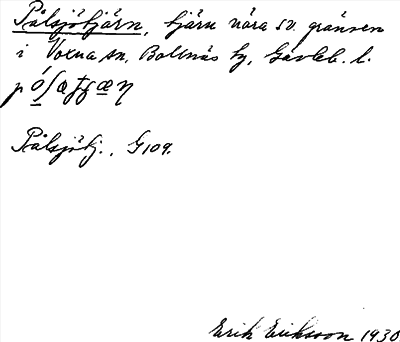 Pålsjötjärn, tjärn nära sv. gränsen
i Voxna sn, Bollnäs tg, Gävleb. l.
Pålsjötj., G109.
Erik Eriksson 1930